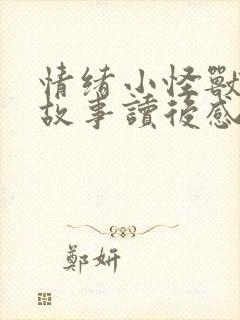 情绪小怪獸
故事讀後感
鄭妍